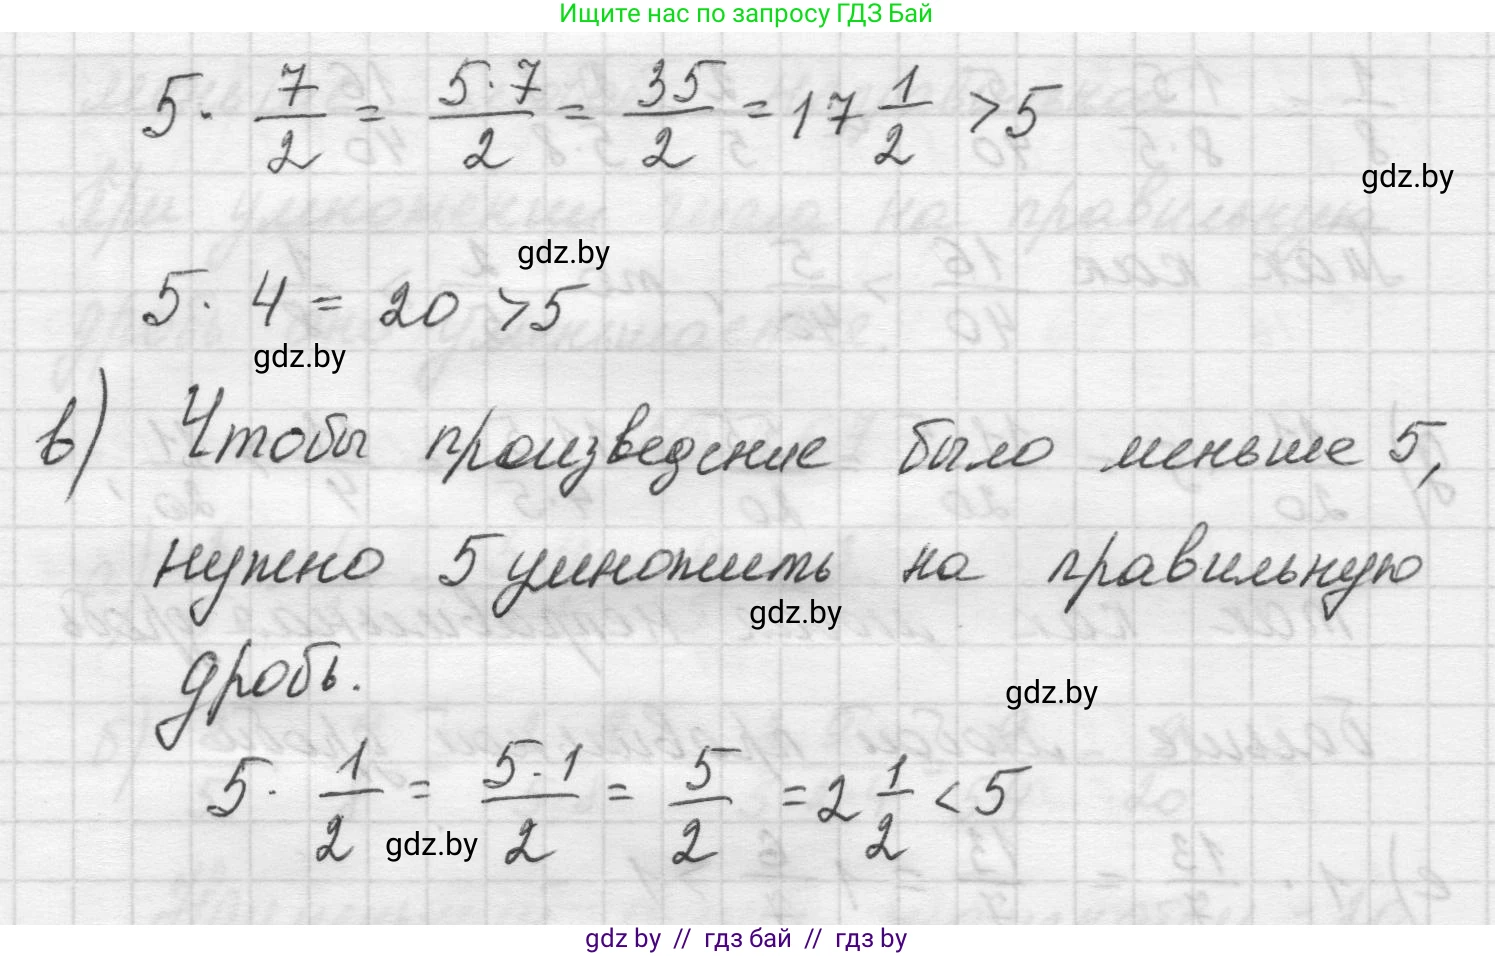 Ищите нас по запросу ГДЗ Бай
5 · 7/2 = 5·7/2 = 35/2 = 17 1/2 > 5
gdz.by
gdz.by
5 · 4 = 20 > 5
gdz.by
в) Чтобы произведение было меньше 5,
нужно 5 умножить на правильную
gdz.by
дробь.
gdz.by
5 · 1/2 = 5·1/2 = 5/2 = 2 1/2 < 5
gdz.by
gdz by // гдз бай // гдз by